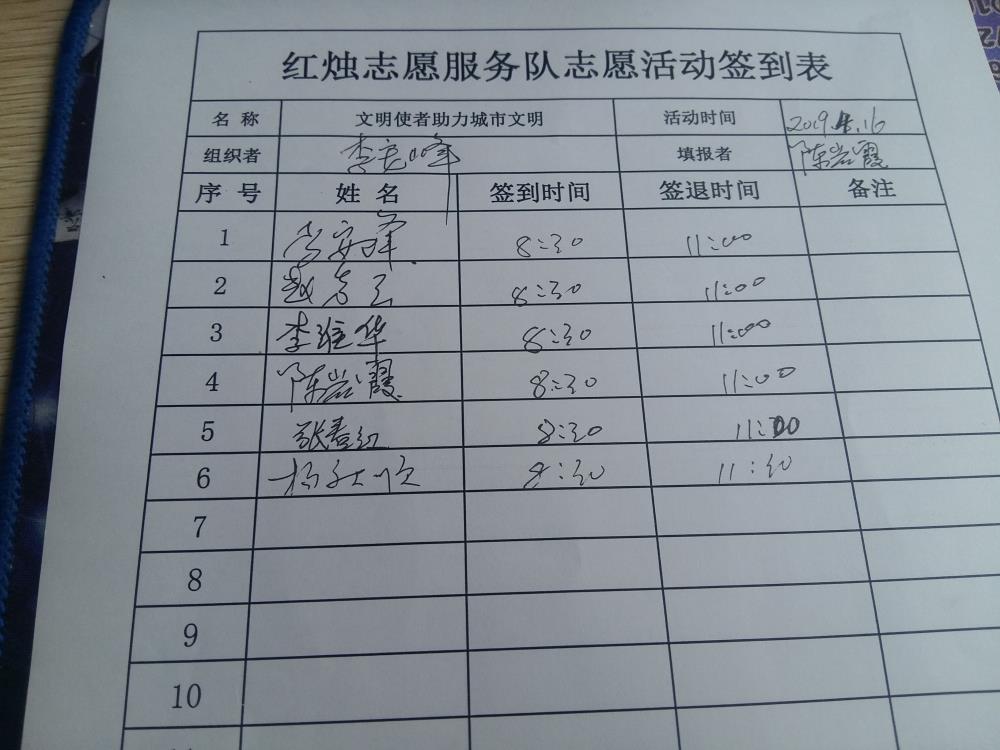 红烛志愿服务队志愿活动签到表
名 称 文明使者助力城市文明 活动时间 2019.4.16
组织者 李安峰 填报者 陈岩霞
序 号 姓 名 签到时间 签退时间 备注
1 李安峰 8:30 11:00
2 赵 8:30 11:00
3 李维华 8:30 11:00
4 陈岩霞 8:30 11:00
5 张春红 8:30 11:00
6 杨 顺 8:30 11:30
7
8
9
10